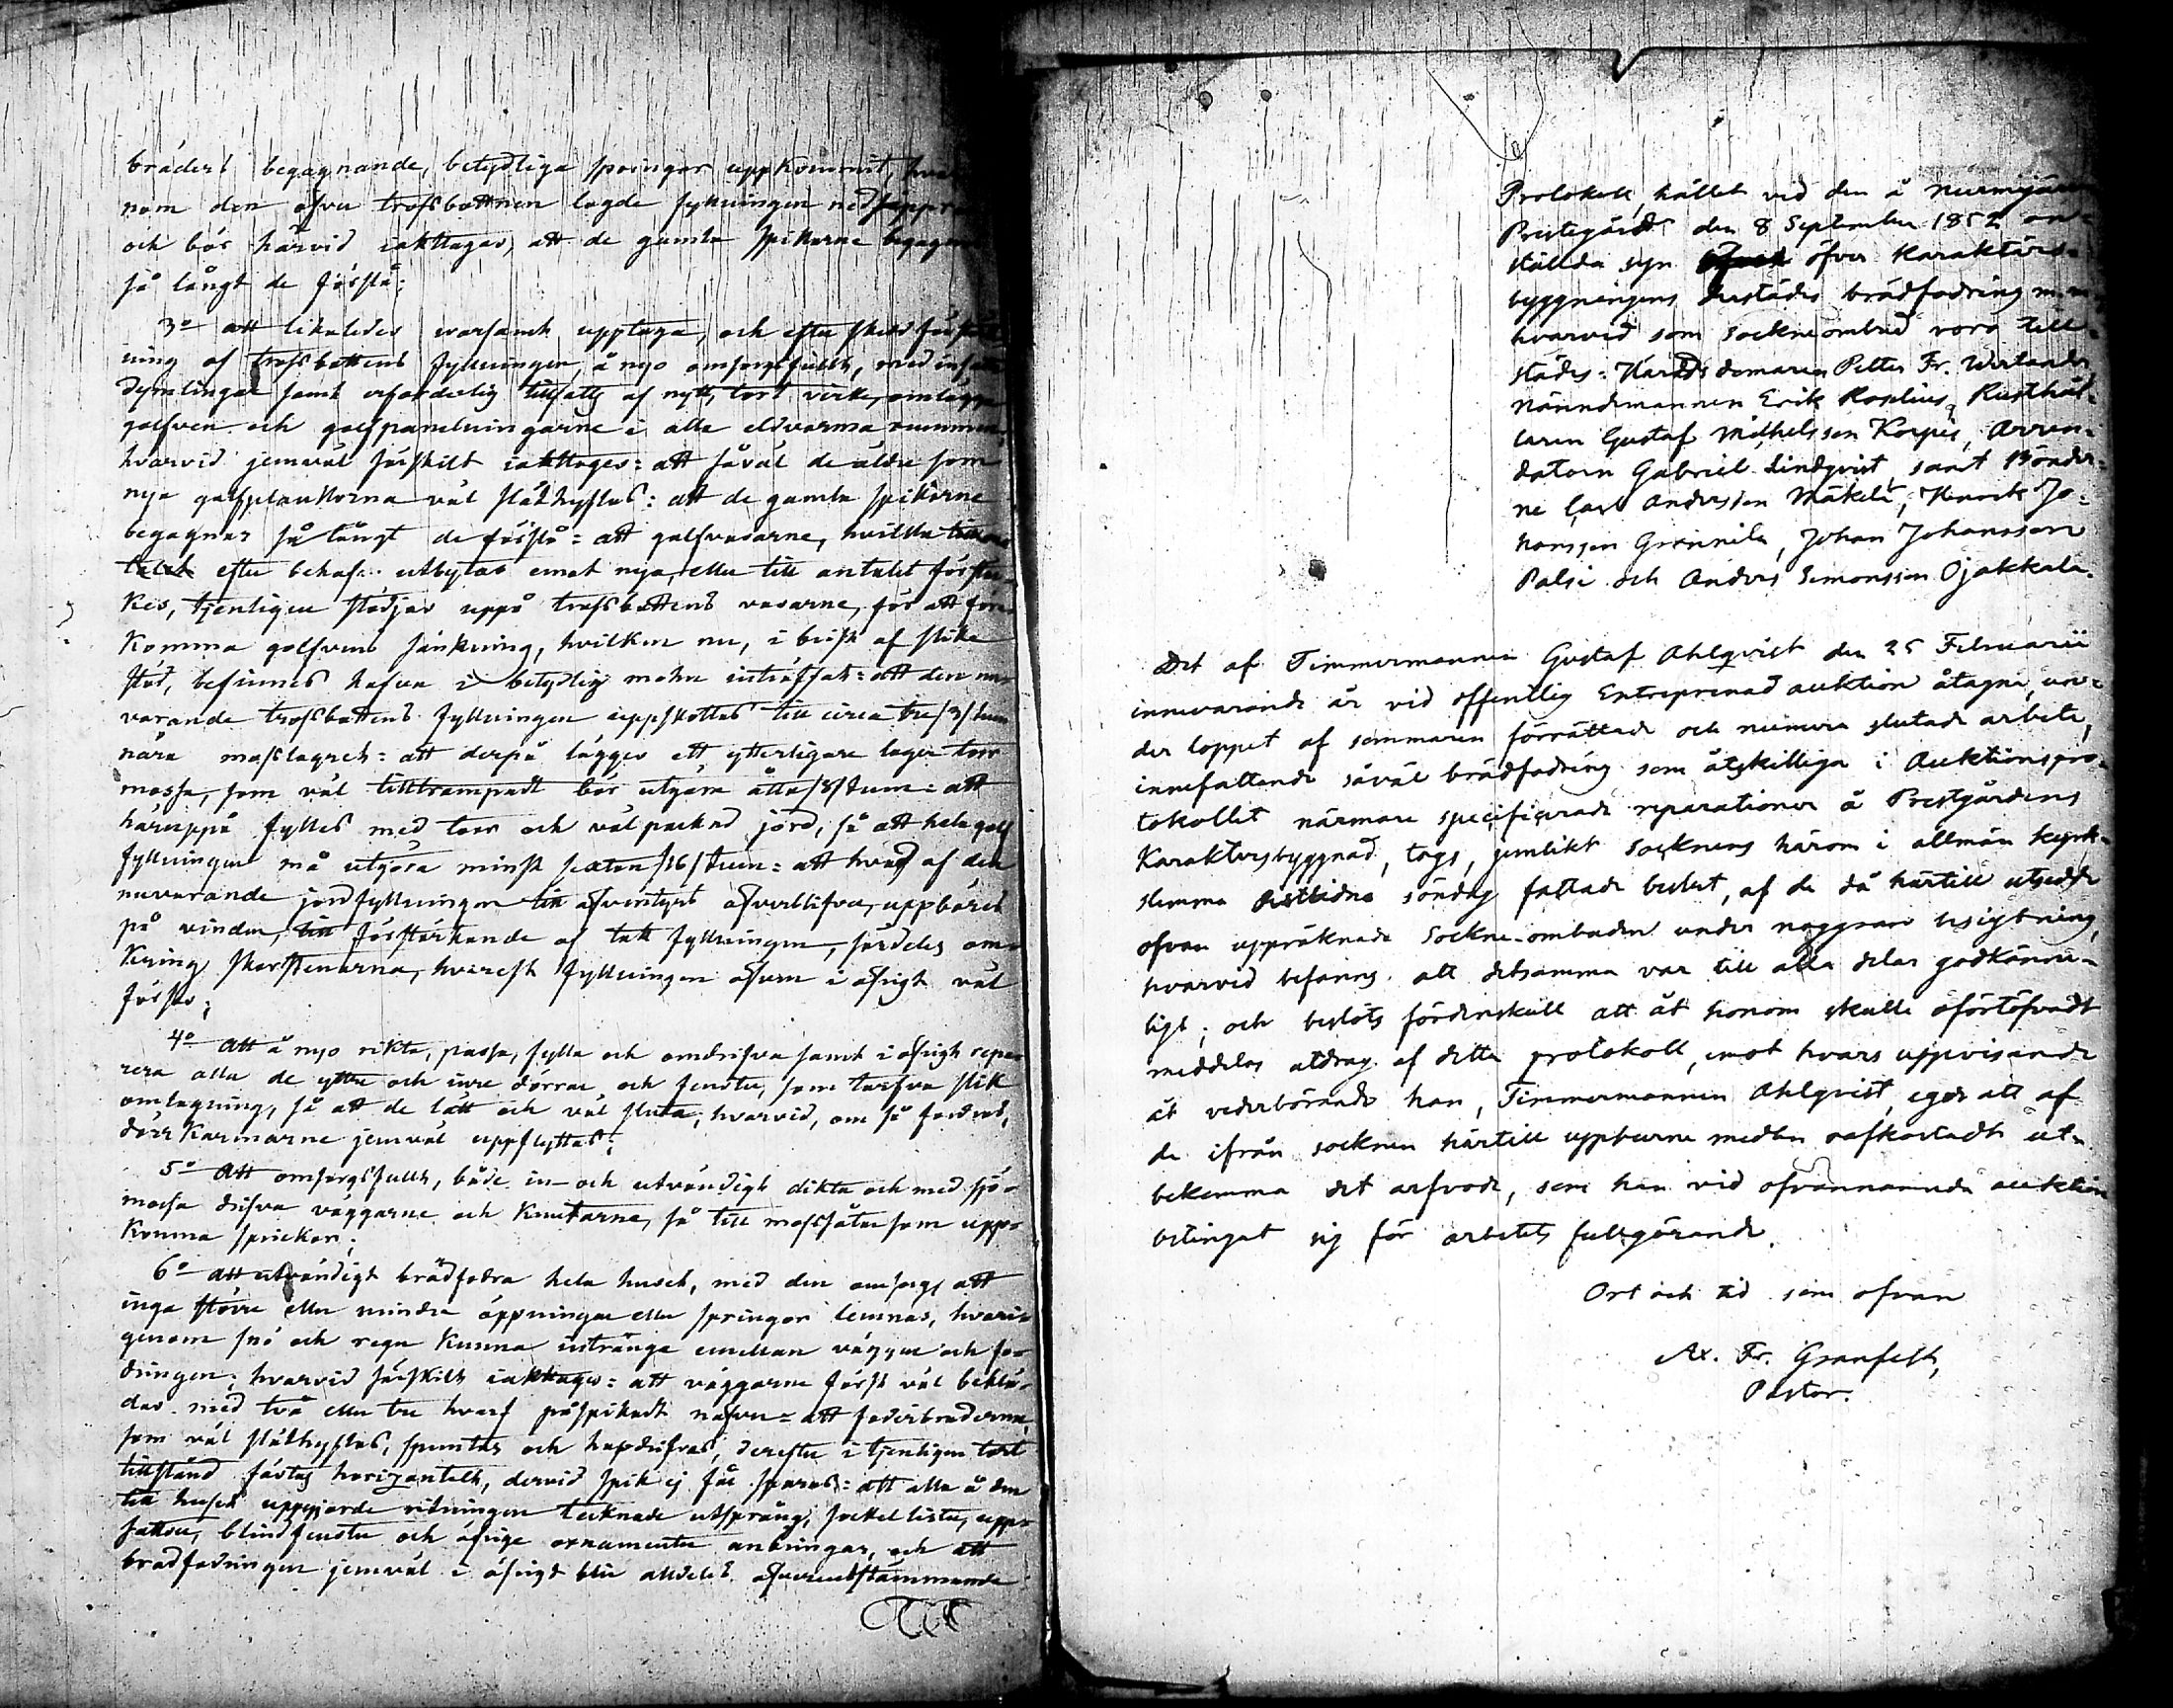 bräders begagnande, betydliga springor uppkommit,
nom den öfver trossbottnen lagde fyllningen
och bör härvid iakttagas, att de gamla spikarne
så långt de förslå;
3o att likaledes varsamt upptaga, och efter skedd
ning af trossbottens fyllningen, å nyo omsorgsfullt, med
dymlingar samt erforderlig tillsatts af nytt, tort virke, omlägga
golfven och golfpanelningarne i alla eldvarma rummen,
hvarvid jemväl särskilt iakttages: att såväl de äldre som
nya golfplankorna väl släthyflas: att de gamla spikarne
begagnas så långt de förslå: att golfvasarne, hvilka
efter behof utbytas emot nya, eller till antalet förstär-
kes, tjenligen stödjas uppå trossbottens vasarne, för att före-
komma golfvens sänkning, hvilken nu, i brist af slika
stöd, befinnes hafva i betydlig mohn inträffat: att den nu-
varande trossbottens fyllningen uppskottas till circa tre /3/ tum
nära mosslagret: att derpå lägges ett ytterligare lager torr
mossa, som väl tilltrampadt bör utgöra åtta /8/ tum: att
häruppå fylles med torr och väl packad jord, så att hela golf
fyllningen må utgöra minst sexton /16/ tum: att hvad af den
nuvarande jordfyllningen till äfventyrs öfverblifver, uppbäres
på vinden, till förstärkande af tak fyllningen, särdeles om-
kring skorstenarna, hvarest fyllningen äfven i öfrigt väl
förses;
4o Att å nyo rikta, passa, fylla och omdrifva samt i öfrigt repa-
rera alla de yttre och inre dörrar och fenster, som tarfva slik
omlagning, så att de lätt och väl sluta; hvarvid, om så fordras,
dörr karmarne jemväl uppflyttas;
5o Att omsorgsfullt, både in- och utvändigt dikta och med sjö-
mossa drifva väggarne och knutarne, så till mossåtar som upp-
komna sprickor;
6o att utvändigt brädfodra hela huset, med den omsorg, att
inga större eller mindre öppningar eller springor lemnas, hvari-
genom snö och regn kunna inträngа emellan väggen och fo-
dringen; hvarvid särskilt iakttages: att väggarne först väl beklä-
das med två eller tre hvarf påspikadt näfver: att foderbräderna,
som väl släthyflas, spuntas och hopdrifvas, derefter i tjenligen tort
tillstånd fästas horizontelt, dervid spik ej får sparas: att alla å den
till huset uppgjorde ritningen tecknade utsprång, sockel lister, upp-
satser, blindfenster och öfrige ornamenter anbringas, och att
brädfodringen jemväl i öfrigt blir alldeles öfverensstämmande
Protokoll, hållet vid den å Nurmijärvi
Prestegård den 8 September 1852 an-
ställda syn öfver Karaktärs-
byggningens derstädes brädfodring m.m.
hvarvid som sockneombud voro till-
städes: Häradsdomaren Petter Fr. Wirlander,
Nämndemannen Erik Roslius, Rusthål-
laren Gustaf Michelsson Korpi, Arren-
datorn Gabriel Lindqvist, samt Bönder-
ne Carl Andersson Mäkelä, Henrik Jo-
hansson Grönnila, Johan Johansson
Palsi och Anders Simonsson Ojakkala.
Det af Timmermannen Gustaf Ahlqvist den 25 Februarii
innevarande år vid offentlig Entreprenad auktion åtagne, un-
der loppet af sommaren förrättade och numera slutade arbete,
innefattande såväl brädfodring som åtskilliga i Auktionspro-
tokollet närmare specificerade reparationer å Prestgårdens
Karaktersbyggnad, togs, jemlikt Socknens härom i allmän kyrk-
stemma sistlidne söndag fattade beslut, af de då härtill utsedde
ofvan uppräknade Sockne-ombuden under noggran besigtning,
hvarvid befanns att detsamma var till alla delar godkänne-
ligt; och beslöts fördenskull att åt honom skulle oförtöfvadt
meddelas utdrag af detta protokoll, emot hvars uppvisande
åt vederbörande han, Timmermannen Ahlqvist, eger att af
de ifrån socknen härtill uppburne medlen oafkortadt ut-
bekomma det arfvode, som han vid ofvannämnda auktion
betingat sig för arbetets fullgörande.
Ort och tid som ofvan
Ax. Fr. Granfelt,
Pastor.